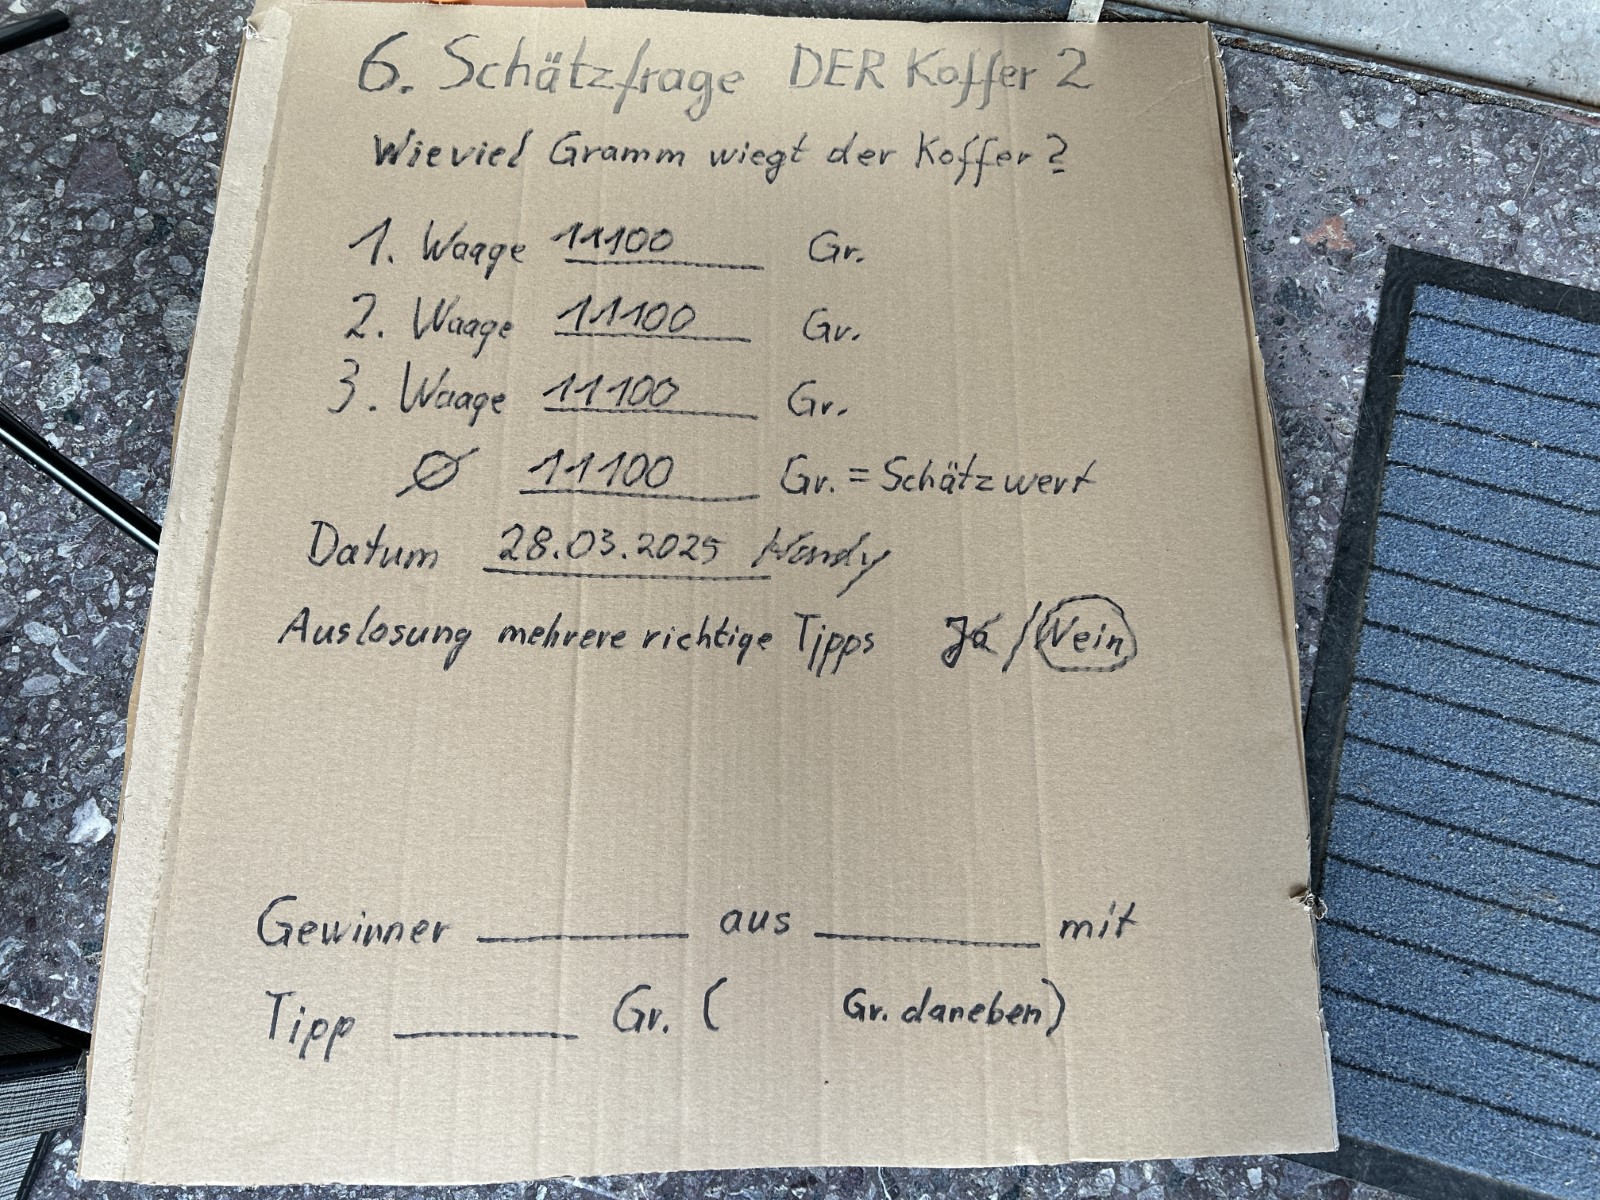 6. Schätzfrage DER Koffer 2
Wieviel Gramm wiegt der Koffer?
1. Waage 11100 Gr.
2. Waage 11100 Gr.
3. Waage 11100 Gr.
Ø 11100 Gr. = Schätzwert
Datum 28.03.2025
Auslosung mehrere richtige Tipps Ja / Nein
Gewinner ________ aus ________ mit
Tipp ________ Gr. ( Gr. daneben)